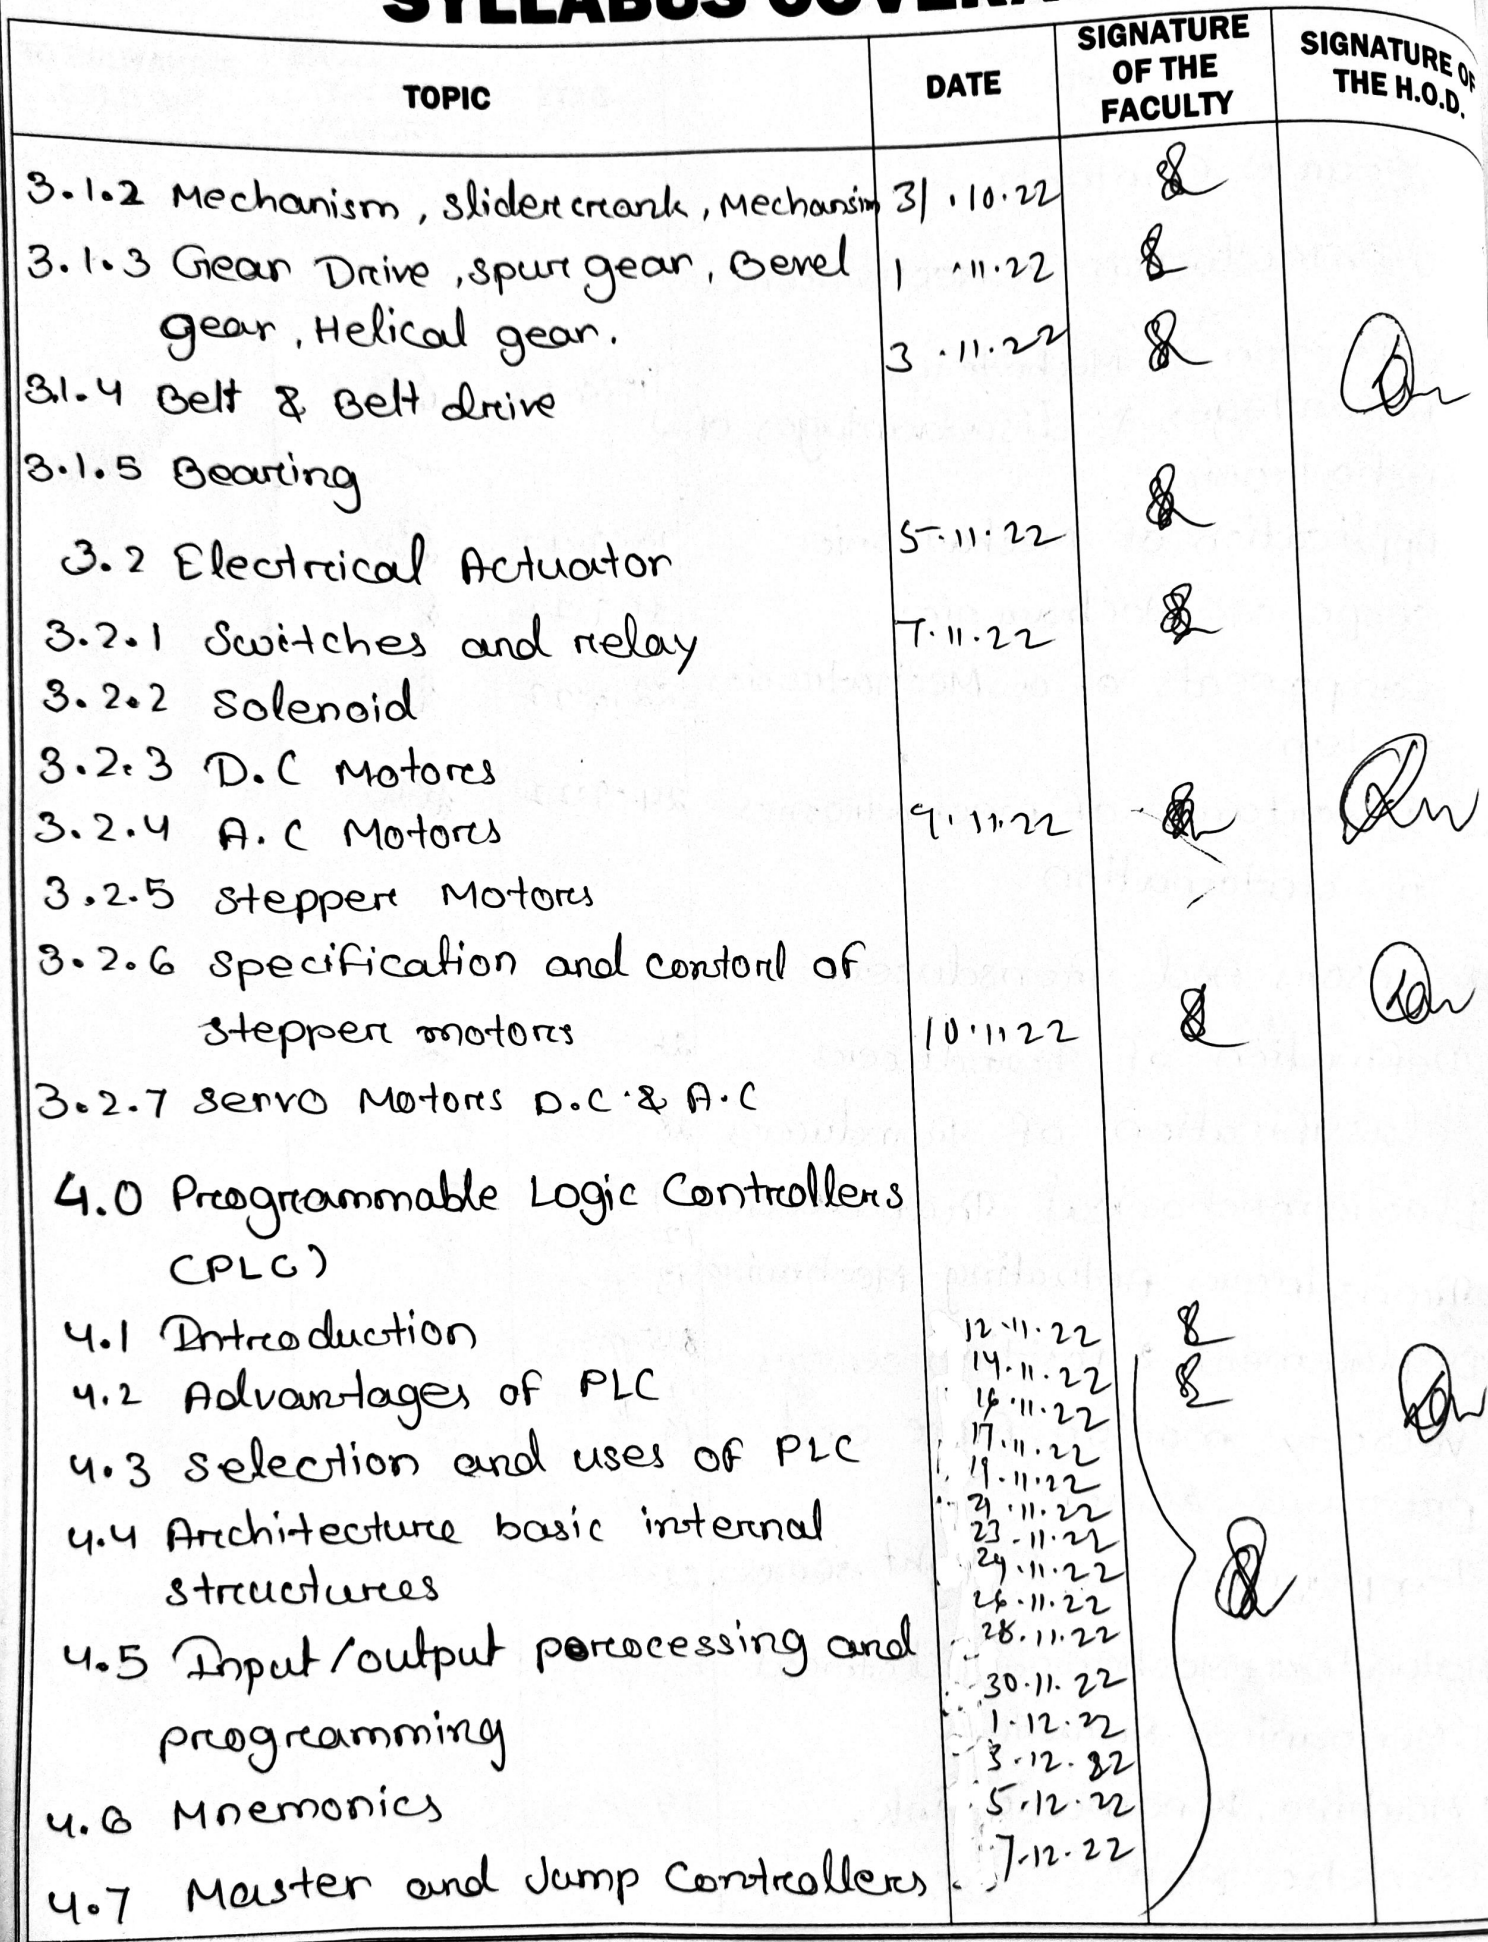 SYLLABUS COVERA
TOPIC
DATE
SIGNATURE
OF THE
FACULTY
SIGNATURE OF
THE H.O.D.
3.1.2 Mechanism, slider crank, Mechansim 31.10.22
3.1.3 Gear Drive, spur gear, Bevel 1.11.22
gear, Helical gear. 3.11.22
3.1.4 Belt & Belt drive
3.1.5 Bearing
5.11.22
3.2 Electrical Actuator
3.2.1 Switches and relay 7.11.22
3.2.2 Solenoid
3.2.3 D.C Motors
3.2.4 A.C Motors 9.11.22
3.2.5 Stepper Motors
3.2.6 Specification and contorl of
stepper motors 10.11.22
3.2.7 Servo Motors D.C & A.C
4.0 Programmable Logic Controllers
(PLC)
4.1 Introduction 12.11.22
14.11.22
4.2 Advantages of PLC 16.11.22
17.11.22
4.3 Selection and uses of PLC 19.11.22
21.11.22
4.4 Architecture basic internal 23.11.22
24.11.22
structures 26.11.22
28.11.22
4.5 Input/output porocessing and
30.11.22
1.12.22
programming 3.12.22
4.6 Mnemonics 5.12.22
7.12.22
4.7 Master and Jump Controllers